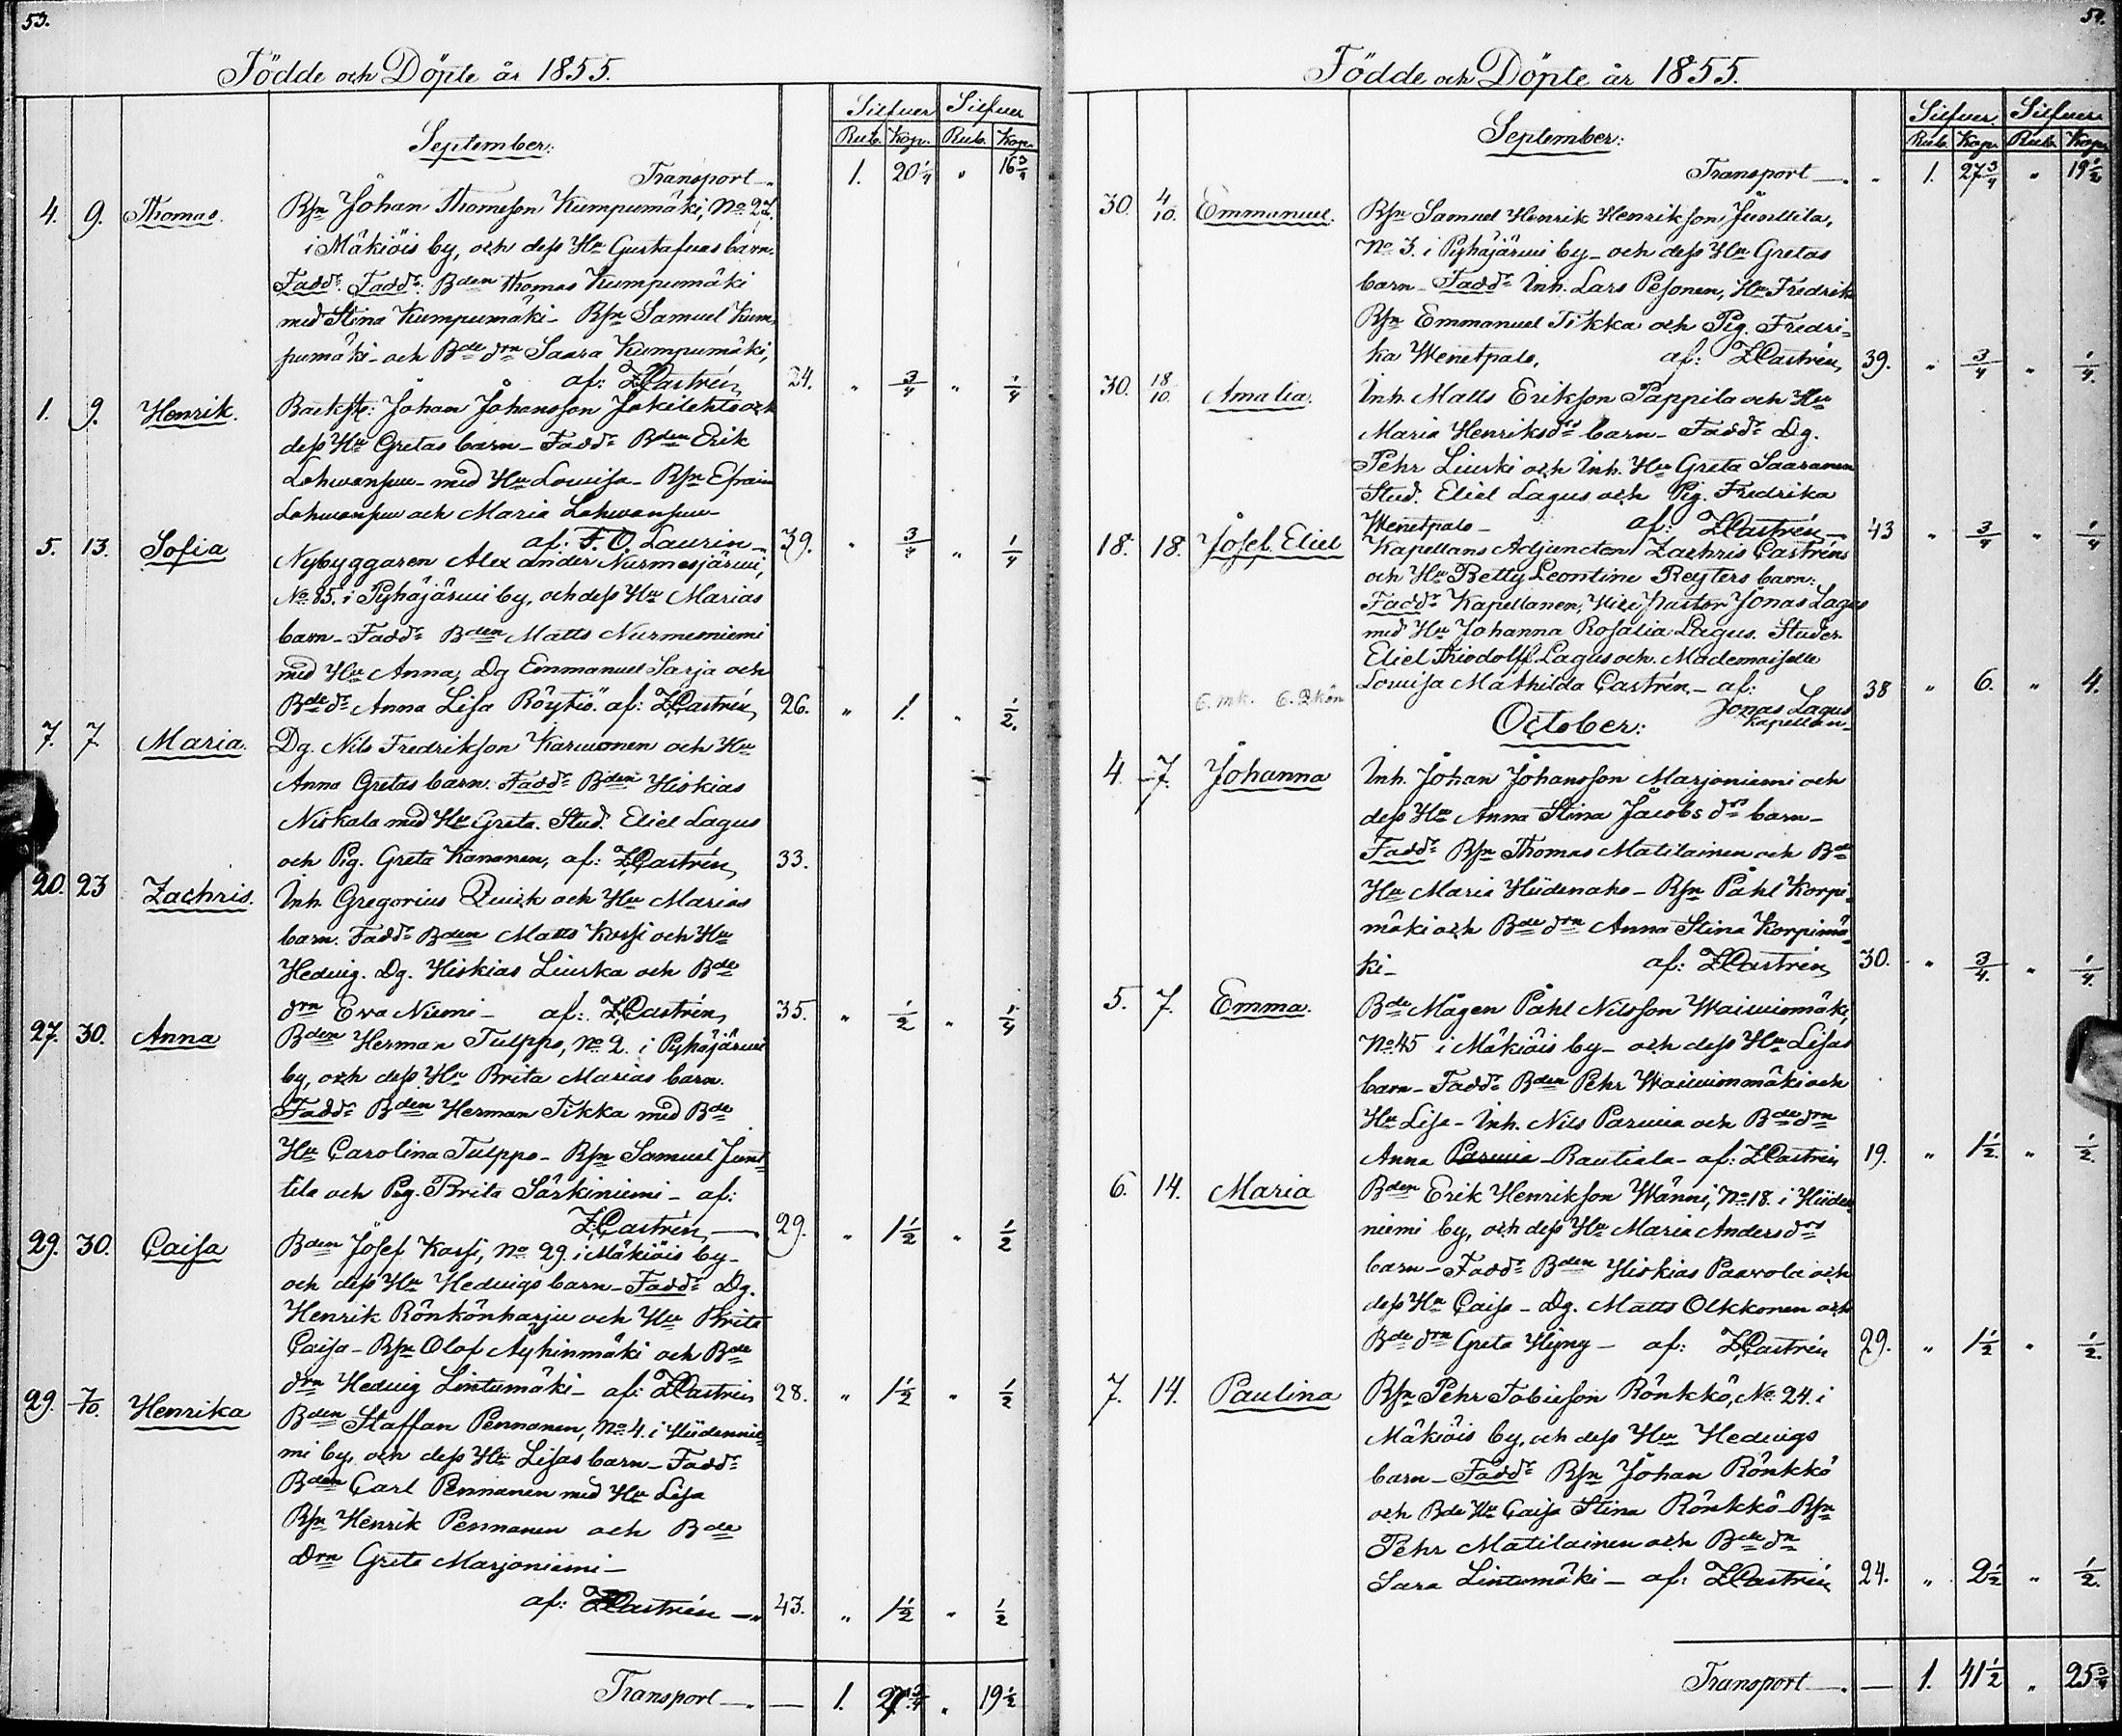 53.
Födde och Döpte år 1855.
Silfver Silfver
Rub. Kop. Rub. Kop.
September:
Transport — 1. 20 1/4 " 16 3/4
4. 9. Thomas. Bsn Johan Thomeson Kumpumäki, No 27.
i Mäkiöis by, och dess Hu Gustafvas barn.
Fadd: Fadd: Bden Thomas Kumpumäki
med Stina Kumpumäki - Bsn Samuel Kum-
pumäki - och Bde drn Saara Kumpumäki,
af: ZCastrén 24. " 3/4 " 1/4
1. 9. Henrik. Johan Johansson Jokilehto och
dess Hu Gretas barn - Fadd: Bden Erik
med Hu Lovisa - Bsn Efraim
och Maria
af: F. O. Laurin - 39. " 3/4 " 1/4
5. 13. Sofia Nybyggaren Alexander Nurmesjärvi,
No 85. i Pyhäjärvi by, och dess Hu Marias
barn - Fadd: Bden Matts Nurmesniemi
med Hu Anna, Dg Emmanuel Sarja och
Bde dr Anna Lisa Röytiö. af: ZCastrén 26. " 1. " 1/2.
7. 7 Maria. Dg. Nils Fredrikson Karvonen och Hu
Anna Gretas barn. Fadd: Bden Hiskias
Niskala med Hu Greta. Stud. Eliel Lagus
och Pig. Greta Kananen, af: ZCastrén 33.
20. 23 Zachris. Inh. Gregorius Quick och Hu Marias
barn. Fadd: Bden Matts Kossi och Hu
Hedvig. Dg. Hiskias Liuska och Bde
drn Eva Niemi - af: ZCastrén 35. " 1/2 " 1/4
27. 30. Anna Bden Herman Tulppo, No 2. i Pyhäjärvi
by, och dess Hu Brita Marias barn.
Fadd: Bden Herman Tikka med Bde
Hu Carolina Tulppo - Bsn Samuel Junt-
tila och Pig. Brita Särkiniemi - af:
ZCastrén — 29. " 1 1/2 " 1/2
29. 30. Caisa Bden Josef Kossi, No 29. i Mäkiöis by -
och dess Hu Hedvigs barn - Fadd: Dg.
Henrik Rönkönharju och Hu Brita
Caisa - Bsn Olof Äyhinmäki och Bde
drn Hedvig Lintumäki - af: ZCastrén 28. " 1 1/2 " 1/2
29. 7/10. Henrika Bden Staffan Pennanen, No 4. i Hiidennie-
mi by, och dess Hu Lisas barn - Fadd:
Bden Carl Pennanen med Hu Lisa
Bsn Henrik Pennanen och Bde
Drn Greta Marjoniemi -
af: ZCastrén — 43. " 1 1/2 " 1/2
Transport — 1. 27 3/4 " 19 1/2
54.
Födde och Döpte år 1855.
Silfver. Silfver
Rub. Kop. Rub. Kop.
September:
Transport — " 1. 27 3/4 " 19 1/2
30. 4/10. Emmanuel. Bsn Samuel Henrik Henrikson Junttila,
No 3. i Pyhäjärvi by - och dess Hu Gretas
barn - Fadd: Inh. Lars Pesonen, Hu Fredrik
Bsn Emmanuel Tikka och Pig. Fredri-
ka Wenetpalo, af: ZCastrén 39. " 3/4 " 1/4.
30. 18/10. Amalia. Inh. Matts Erikson Pappila och Hu
Maria Henriksdrs barn - Fadd: Dg.
Pehr Liuski och Inh. Hu Greta Saaranen
Stud. Eliel Lagus och Pig. Fredrika
Wenetpalo - af: ZCastrén - 43 " 3/4 " 1/4
18. 18. Josef Eliel Kapellans Adjuncten Zachris Castréns
och Hu Betty Leontine Reyters barn:
Fadd: Kapellanen, Vice Pastor Jonas Lagus
med Hu Johanna Rosalia Lagus. Studer.
Eliel Thiodolf Lagus och Mademoiselle
Lovisa Mathilda Castrén, - af: 38 " 6. " 4.
6. mk. 6. Qkön
Jonas Lagus
Kapellan -
October:
4. 7. Johanna Inh. Johan Johansson Marjoniemi och
dess Hu Anna Stina Jacobsdrs barn -
Fadd: Bsn Thomas Matilainen och Bde
Hu Maria Hiidenaho - Bsn Påhl Korpi-
mäki och Bde drn Anna Stina Korpimä-
ki - af: ZCastrén 30. " 3/4. " 1/4.
5. 7. Emma. Bde Mågen Påhl Nilsson Waivionmäki,
No 45 i Mäkiöis by - och dess Hu Lisas
barn - Fadd: Bden Pehr Waivionmäki och
Hu Lisa - Inh. Nils Parvia och Bde drn
Anna Parvia - Rautiala - af: ZCastrén 19. " 1 1/2. " 1/2.
6. 14. Maria Bden Erik Henrikson Wänni, No 18. i Hiiden
niemi by, och dess Hu Maria Andersdrs
barn - Fadd: Bden Hiskias Paavola och
dess Hu Caisa - Dg. Matts Olkkonen och
Bde drn Greta Hyny - af: ZCastrén 29. " 1 1/2 " 1/2.
7. 14. Paulina Bsn Pehr Tobieson Rönkkö, No 24. i
Mäkiöis by, och dess Hu Hedvigs
barn - Fadd: Bsn Johan Rönkkö
och Bde Hu Caisa Stina Rönkkö - Bsn
Pehr Matilainen och Bde dn
Sara Lintumäki - af: ZCastrén 24. " 2 1/2 " 1/2.
Transport — 1. 41 1/2 " 25 3/4